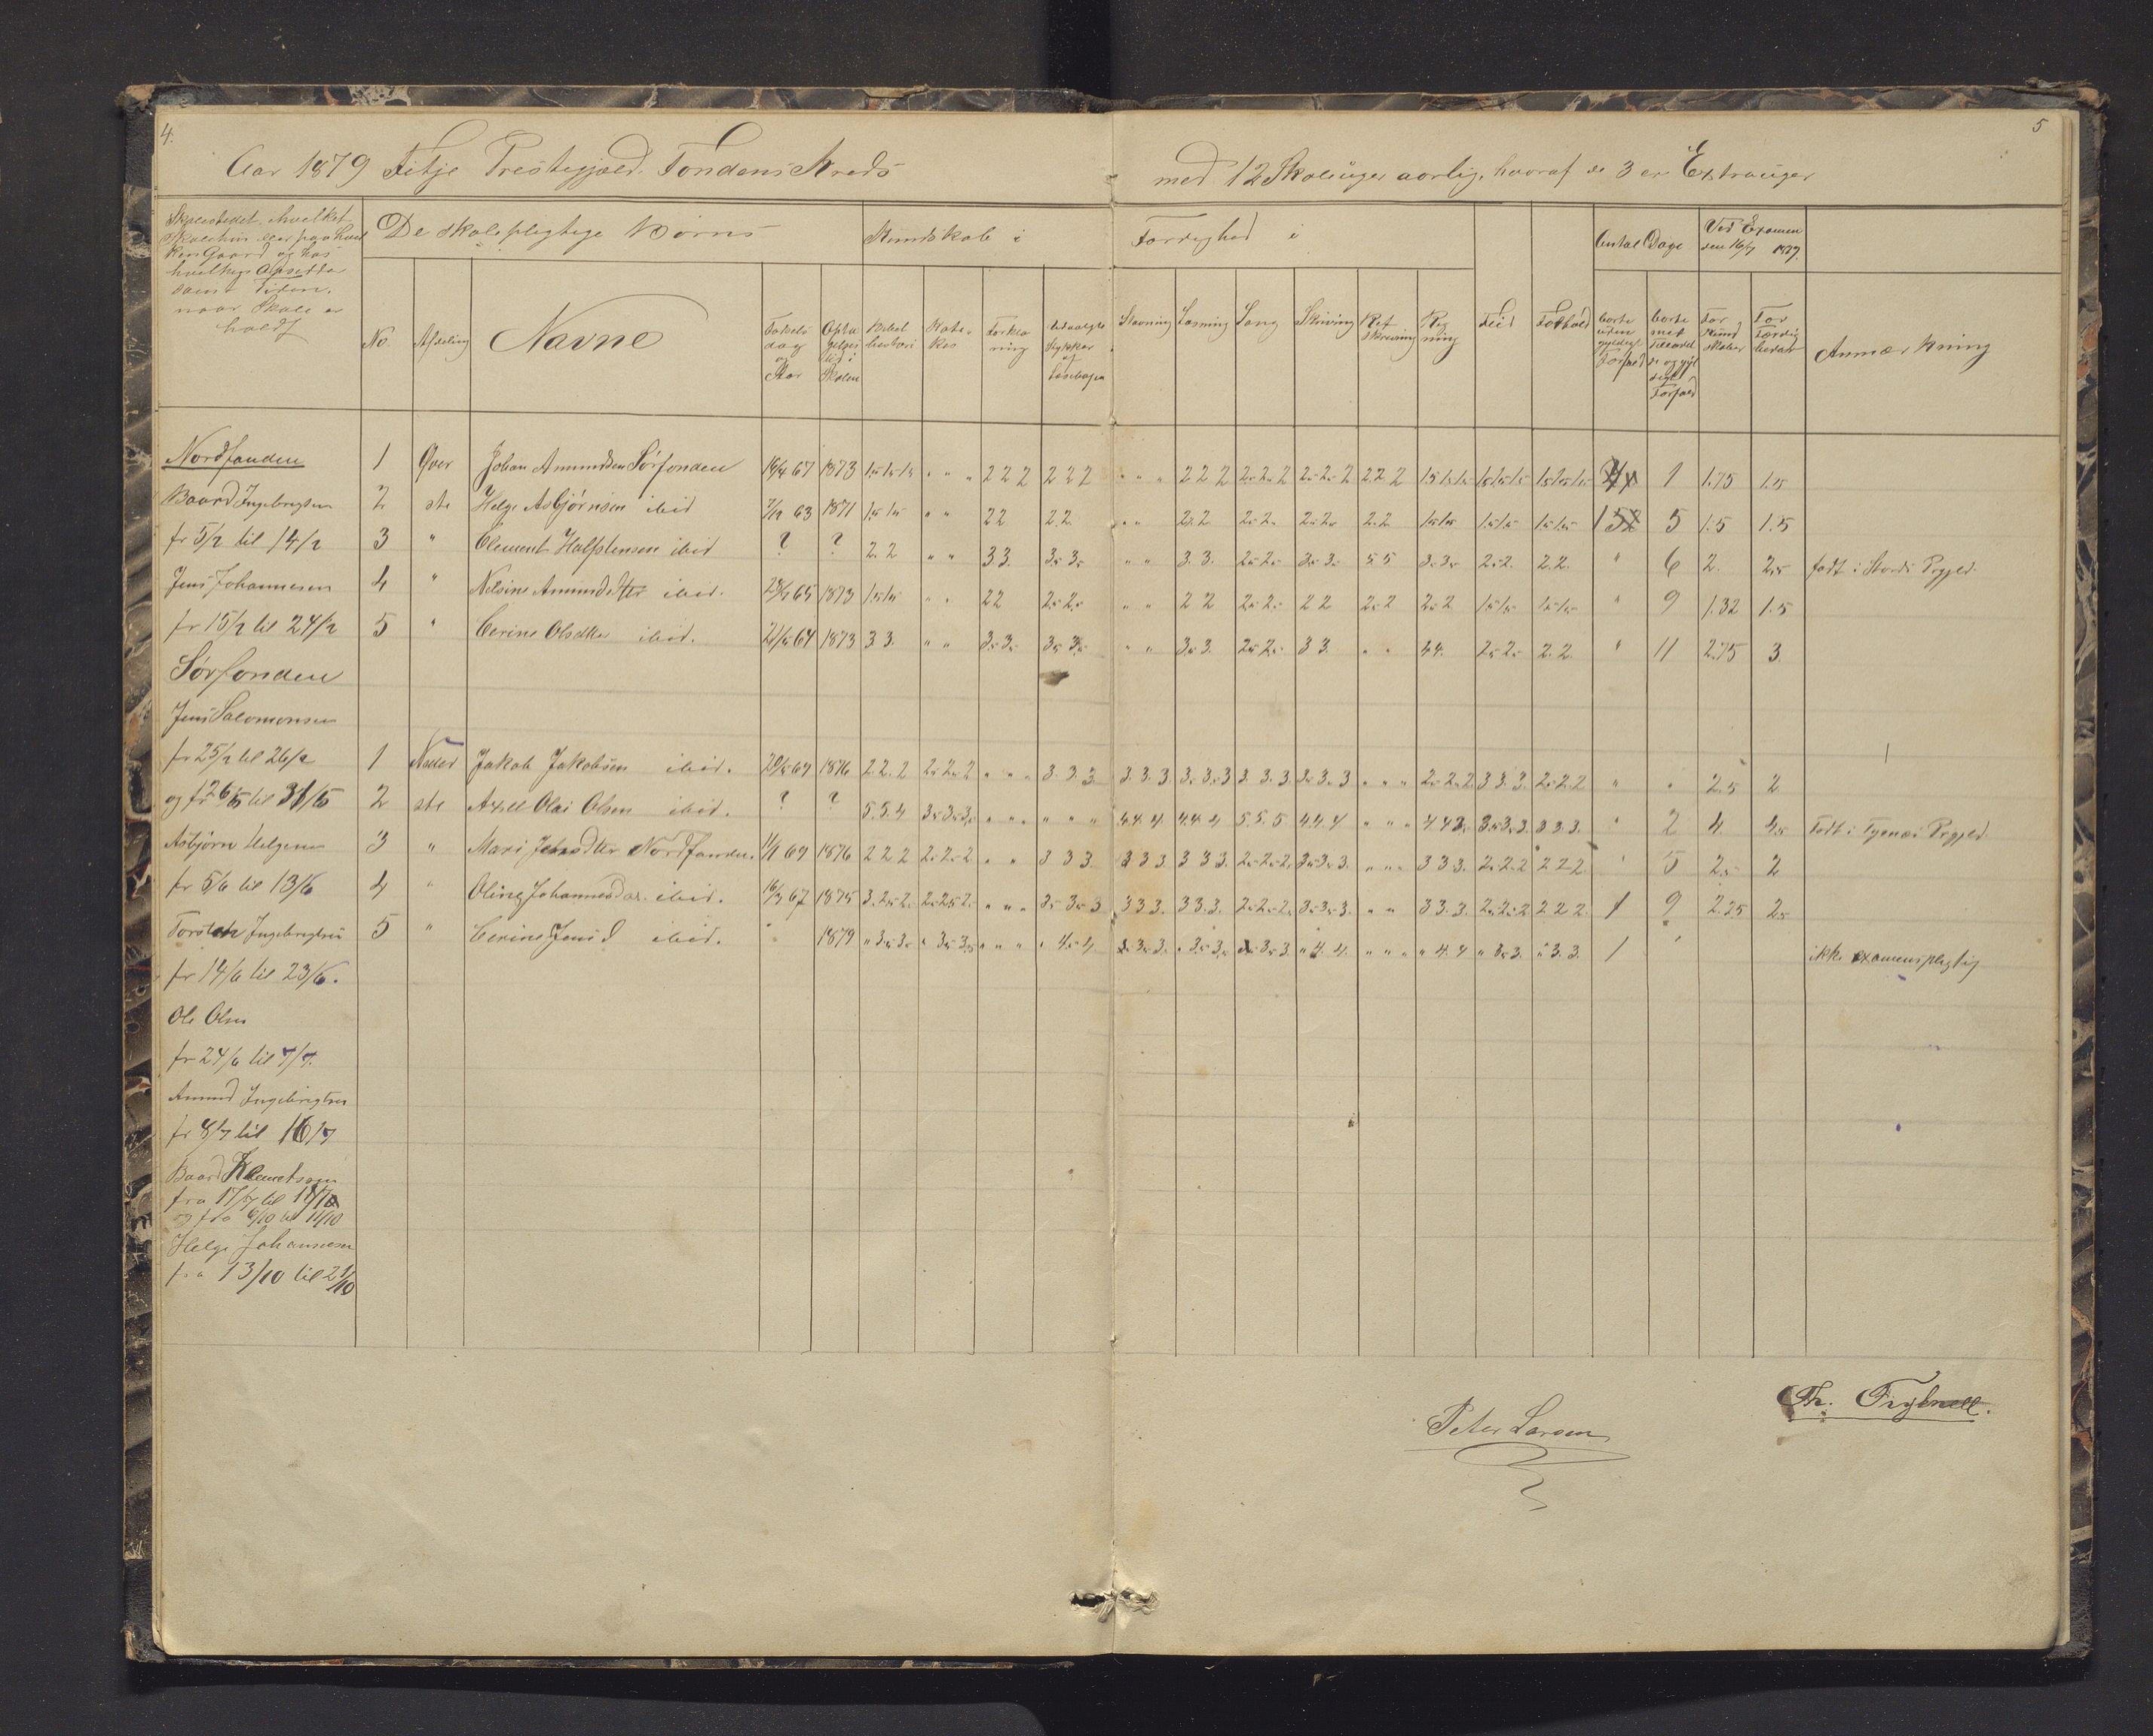 4.
5
Aar 1879 Fitje Prestegjæld. Fondens Kreds
med 12 Skoleuger aarlig, hvoraf de 3 er Extrauger
Skolestedet, hvilket
Skolehus eller paa hvil
ken Gaard og hos
hvilken Opsidder
samt Tiden,
naar Skole er
holdt
De skolepligtige Børns
Kundskab i
Færdighed i
Flid
Forhold
Antal Dage
Ved Examen
den 16/7 1879.
Anmærkning
No.
Afdeling
Navne
Fødsels
dag
og
Aar
Opta
gelses
tid i
Skolen
Bibel
historie
Kate-
kes
Forkla
ning
Udvalgte
Stykker
af
Læsebogen
Stavning
Læsning
Sang
Skrivning
Ret
skrivning
Reg
ning
borte
uden
gyldigt
Forfald
borte
med
og gyl
digt
Forfald
For
Kund
skaber
For
Færdig
heder
Nordfonden
1 Øver Johan Amundsen Sørfonden 18/4 67 1873 1.5 1.5 1.5 " " " 2 2 2 2 2 2 " " " 2 2 2 2. 2. 2 2. 2. 2 2 2 2 1.5 1.5 1.5 1.5 1.5 1.5 1.5 1.5 1.5 1 1.75 1.5
Baard Ingebrigtsen
2 ste Helge Asbjørnsen ibid 7/12 63 1871 1.5 1.5 " " 2 2 2.2. " " 2.2 2. 2. 2. 2. 2.2 1.5 1.5 1.5 1.5 1.5 1.5 5 1.5 1.5
fr 5/2 til 14/2
3 " Clement Halfstensen ibid ? ? 2 2 " " 3 3. 3. 3. " " 3.3. 2. 2. 3. 3. 5 5 3. 3. 2. 2. 2.2. " 6 2. 2.5 født i Stords Prgjld.
Jens Johannesen
4 " Nelsine Amundsdtter ibid. 1873 1.5 1.5 " " 2 2 2. 2. " " 2 2 2. 2. 2 2 2. 2 2. 2 1.5 1.5 1.5 1.5 " 9 1.32 1.5
fr 15/2 til 24/2
5 " Cerine Olsdtter ibid. 1873 3 3. " " 3. 3. 3. 3. " " 3. 3. 2. 2. 3 3. " " 4 4. 2. 2. 2.2. " 11 2.75 3.
Sørfonden
Jens Salomonsen
fr 25/2 til 26/2
1 Neder Jakob Jakobsen ibid. 1876 2. 2. 2 2. 2. 2 " " " 3. 3. 3 3. 3. 3 3. 3. 3 3. 3. 3 3. 3. 3 " " " 2. 2. 2 3 3. 3. 2. 2. 2 " " 2.5 2
og fr 26/5 til 31/5
2 ste Axell Olai Olsen ibid. ? ? 5. 5. 4 3. 3. 3. " " " " " " 4. 4. 4 4. 4. 4 5. 5. 5 4. 4. 4 " " " 4 4 3. 3. 3. 3. 3 3 3. " 2 4. 4.5 Født i Tysnæs Prgjeld.
Asbjørn Helgesen
3 " Mari Nordfonden. 1876 2 2 2 2. 2. 2 " " 3 3 3 3 3 3 3 3 3. 2. 2. 2. 3. 3. 3. " " " 3 3 3. 2. 2. 2 2 2 2 " 5 2.5 2
fr 5/6 til 13/6
4 " Oline Johannesdtr. ibid. 16/3 67 1875 3. 2. 2. 2. 2. 2. " " " 3. 3. 3 3 3 3. 3 3. 3. 2. 2. 2. 3. 3. 3. " " 3 3. 3. 2. 2. 2 2 2 2. 1 9 2.25 2.5
Torsten Ingebrigtsen
5 " Cerine Jens d ibid. 1879 " 3. 3. " 3. 3. " " " " 4. 4. 3. 3. 3. " 3. 3. 3. 3. 3 " 4. 4. " " " " 4. 4 " 3. 3. " 3. 3. 1 ikke examenspligtig
fr 14/6 til 23/6.
Ole Olsen
fr 24/6 til 7/7.
Amund Ingebrigtsen
fr 8/7 til 16/7
Baard Klemetsen
fra 17/7 til
og fra 6/10 til 11/10
Helge Johannesen
fra 13/10 til 21/10
Peter Larsen